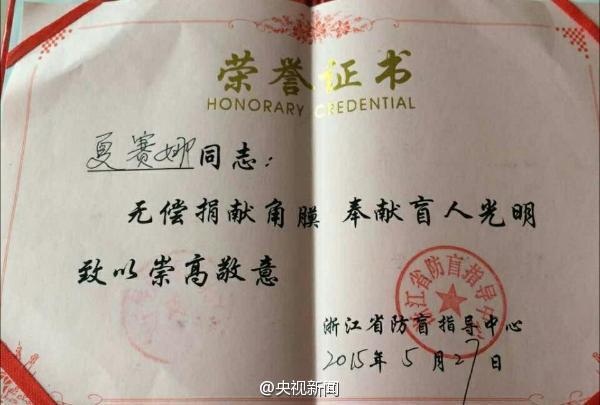 荣誉证书
HONORARY CREDENTIAL
夏赛娜同志：
无偿捐献角膜 奉献盲人光明
致以崇高敬意
浙江省防盲指导中心
浙江省防盲指导中心
2015年5月27日
@央视新闻